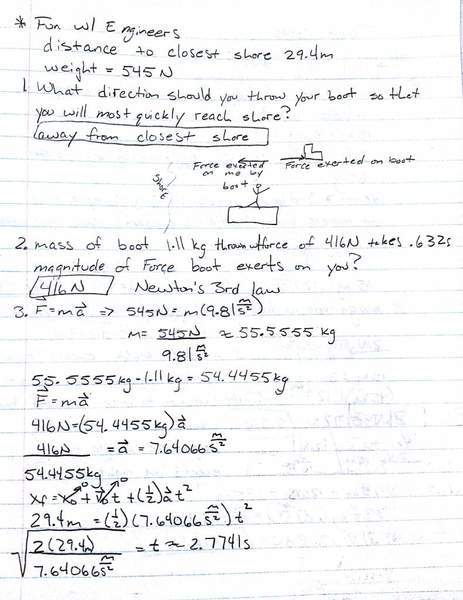 * Fun w/ Engineers
distance to closest shore 29.4m
weight = 545N
1. What direction should you throw your boot so that
you will most quickly reach shore?
away from closest shore
Force exerted on me by boot
Force exerted on boot
Shore
2. mass of boot 1.11 kg thrown w/force of 416N takes .632s
magnitude of Force boot exerts on you?
416N Newton's 3rd law
3. F⃗=ma⃗ => 545N = m(9.81 m/s²)
m = 545N / 9.81 m/s² ≈ 55.5555 kg
55.5555kg - 1.11 kg = 54.4455kg
F⃗=ma⃗
416N=(54.4455kg)a⃗
416N / 54.4455kg = a⃗ = 7.64066 m/s²
x_f = x_0 + v⃗_0 t + (1/2)a⃗t²
29.4m = (1/2)(7.64066 m/s²)t²
√(2(29.4m) / 7.64066 m/s²) = t ≈ 2.7741s